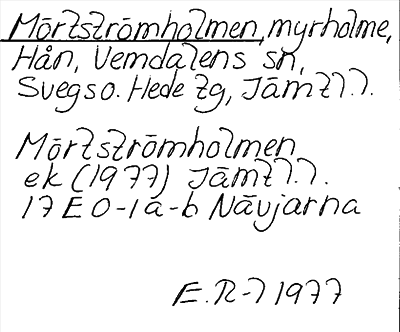 Mörtströmholmen, myrholme,
Hån, Vemdalens sn,
Svegs o. Hede tg, Jämtl.
Mörtströmholmen
ek (1977) Jämtl.
17 E 0-1 a-b Nävjarna
E.R-7 1977